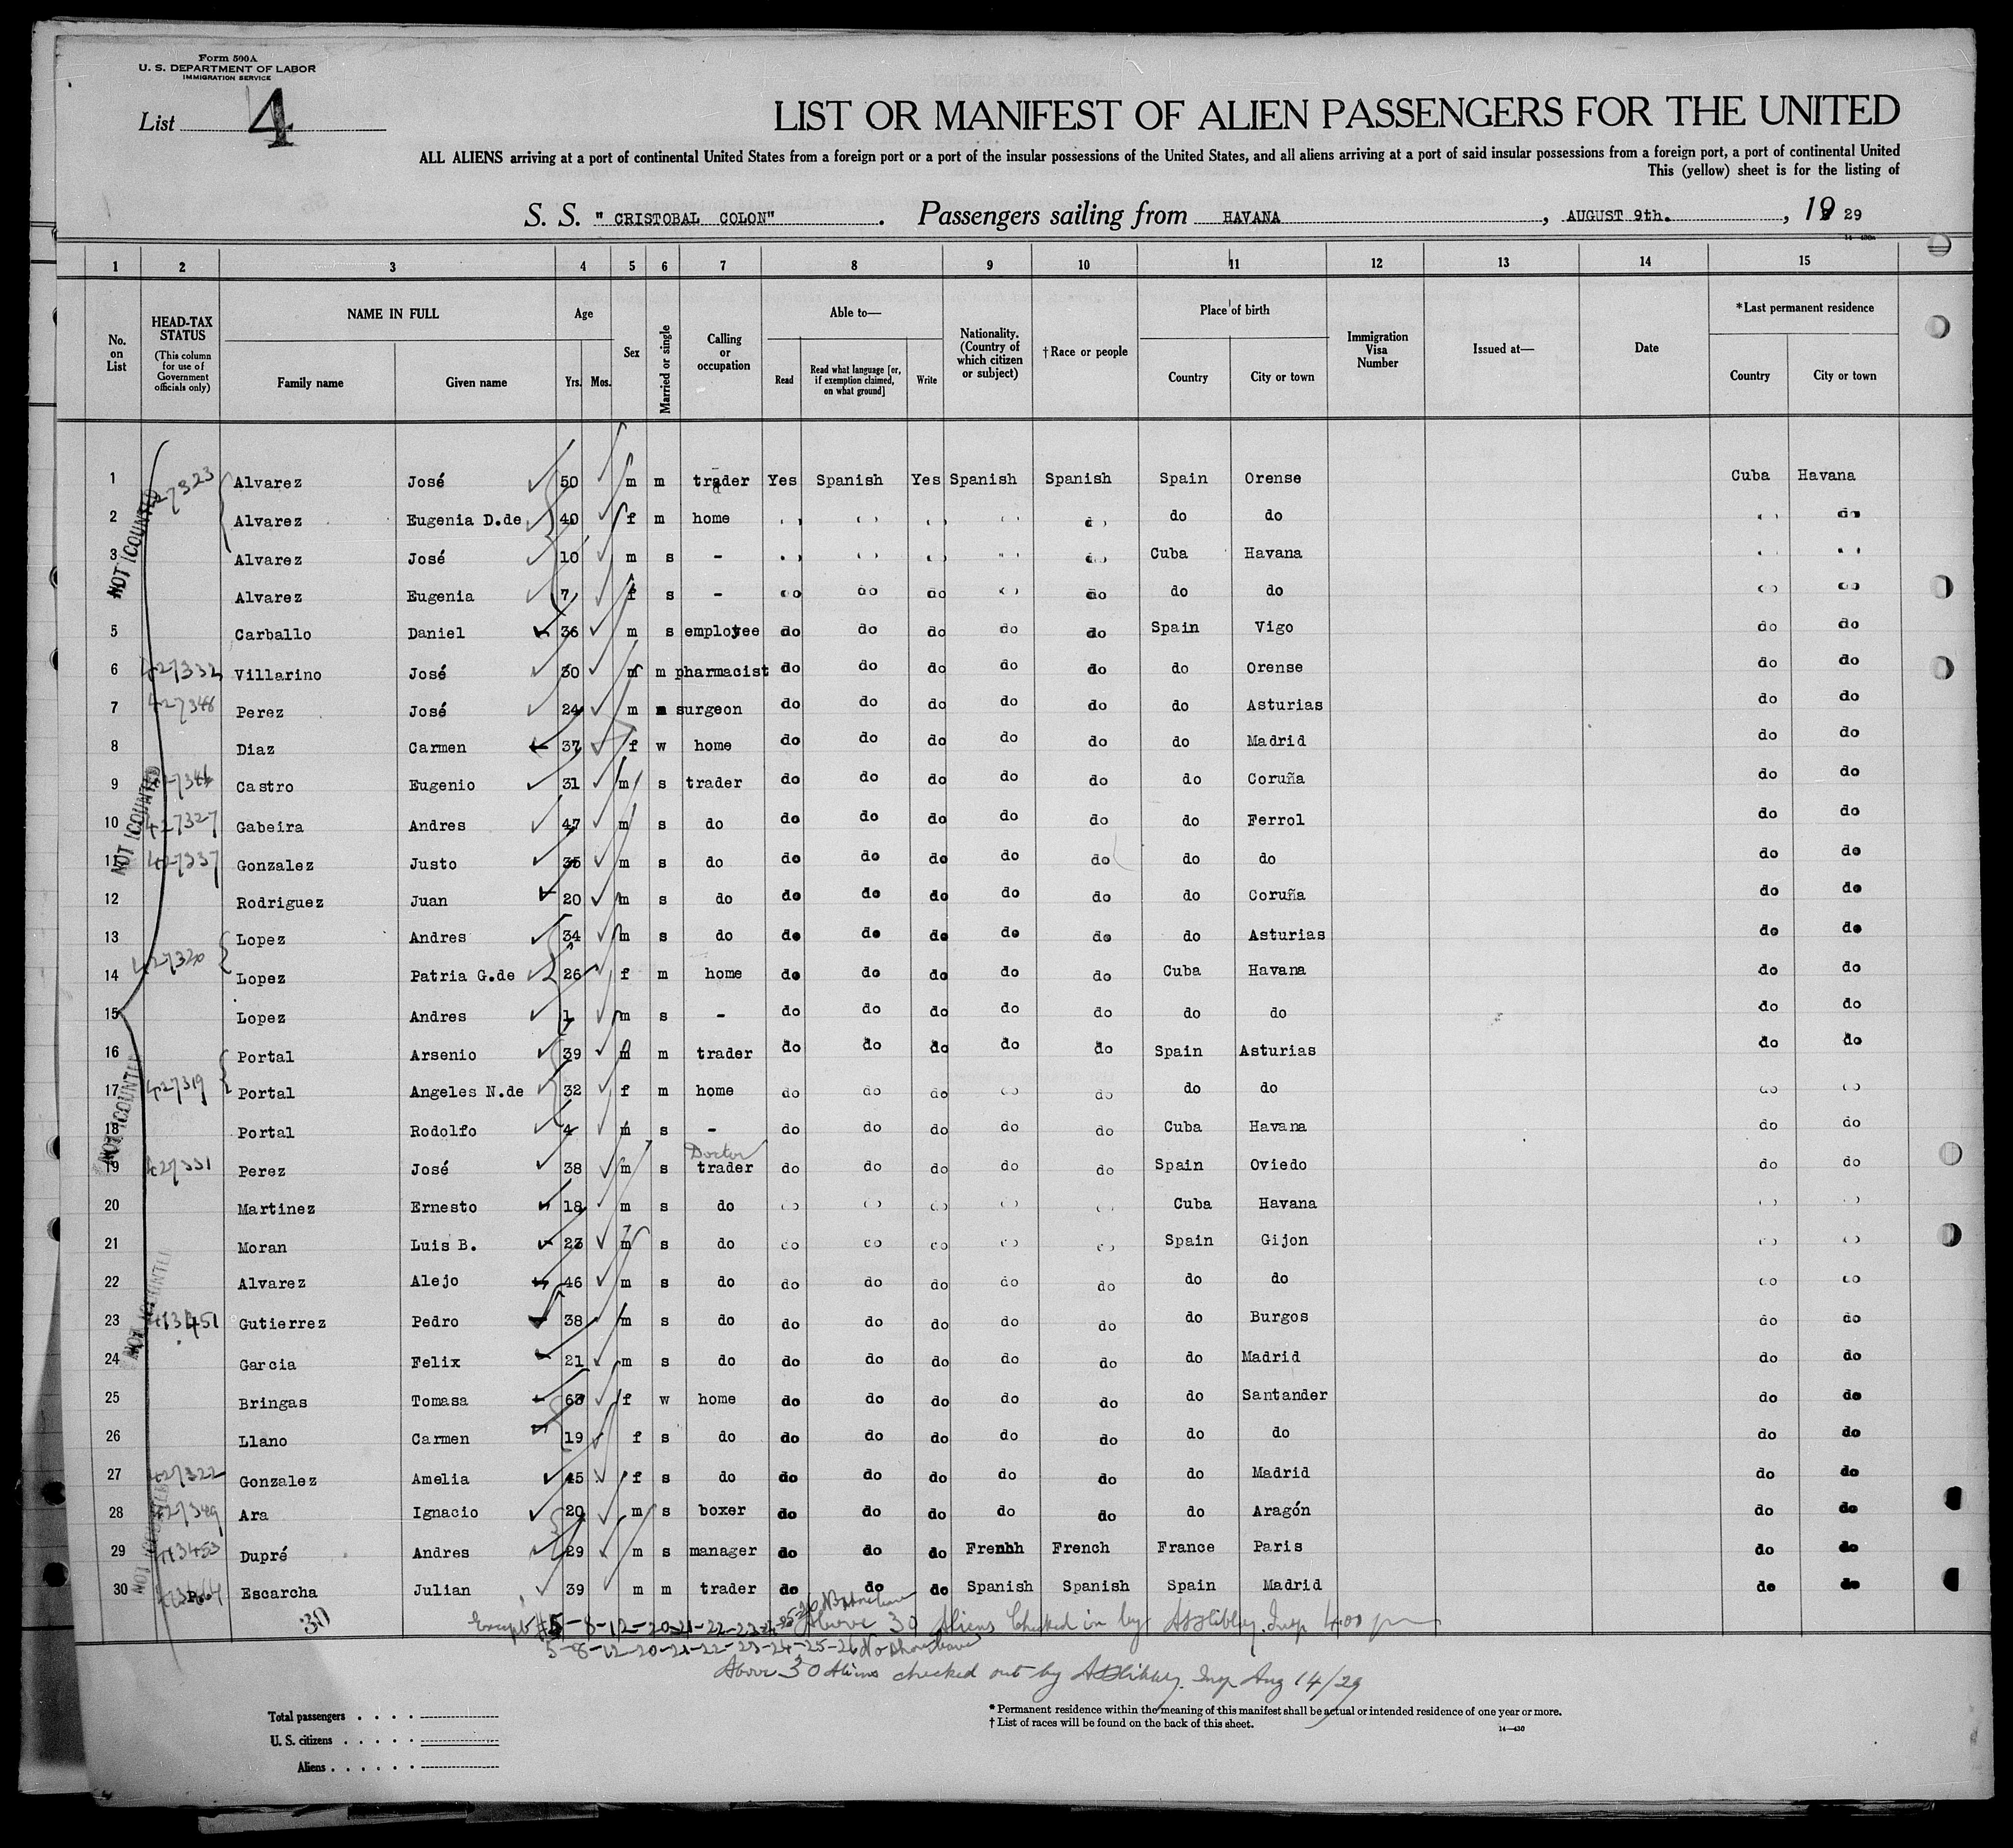 Form 500A
U. S. DEPARTMENT OF LABOR
IMMIGRATION SERVICE
List 4
LIST OR MANIFEST OF ALIEN PASSENGERS FOR THE UNITED
ALL ALIENS arriving at a port of continental United States from a foreign port or a port of the insular possessions of the United States, and all aliens arriving at a port of said insular possessions from a foreign port, a port of continental United
This (yellow) sheet is for the listing of
S. S. " CRISTOBAL COLON" . Passengers sailing from HAVANA , AUGUST 9th. , 19 29
1 2 3 4 5 6 7 8 9 10 11 12 13 14 15
No. on List
HEAD-TAX STATUS (This column for use of Government officials only)
NAME IN FULL
Family name Given name
Age
Yrs. Mos.
Sex
Married or single
Calling or occupation
Able to—
Read Read what language [or, if exemption claimed, on what ground] Write
Nationality. (Country of which citizen or subject)
†Race or people
Place of birth
Country City or town
Immigration Visa Number
Issued at—
Date
*Last permanent residence
Country City or town
1 27323 Alvarez José 50 m m trader Yes Spanish Yes Spanish Spanish Spain Orense Cuba Havana
2 Alvarez Eugenia D.de 40 f m home do do
3 Alvarez José 10 m s - Cuba Havana
Alvarez Eugenia 7 f s - do do do do do do
5 Carballo Daniel 36 m s employee do do do do do Spain Vigo do do
6 427332 Villarino José 30 m m pharmacist do do do do do do Orense do do
7 427348 Perez José 24 m surgeon do do do do do do Asturias do do
8 Diaz Carmen 37 f w home do do do do do do Madrid do do
9 Castro Eugenio 31 m s trader do do do do do do Coruña do do
10 427327 Gabeira Andres 47 m s do do do do do do do Ferrol do do
11 427337 Gonzalez Justo 35 m s do do do do do do do do do do
12 Rodriguez Juan 20 m s do do do do do do do Coruña do do
13 Lopez Andres 34 m s do do do do do do do Asturias do do
14 427320 Lopez Patria G.de 26 f m home do do do do do Cuba Havana do do
15 Lopez Andres 1 m s - do do do do do do do do do
16 Portal Arsenio 39 m m trader do do do do do Spain Asturias do do
17 427319 Portal Angeles N.de 32 f m home do do do do do do do
18 Portal Rodolfo 4 m s - do do do do do Cuba Havana do do
Doctor
19 427331 Perez José 38 m s trader do do do do do Spain Oviedo do do
20 Martinez Ernesto 18 m s do Cuba Havana
21 Moran Luis B. 23 m s do do do do Spain Gijon
22 Alvarez Alejo 46 m s do do do do do do do do
23 413451 Gutierrez Pedro 38 m s do do do do do do do Burgos do do
24 Garcia Felix 21 m s do do do do do do do Madrid do do
25 Bringas Tomasa 63 f w home do do do do do do Santander do do
26 Llano Carmen 19 f s do do do do do do do do do do
27 427322 Gonzalez Amelia 45 f s do do do do do do do Madrid do do
28 427349 Ara Ignacio 20 m s boxer do do do do do do Aragón do do
29 413453 Dupré Andres 29 m s manager do do do Frenhh French France Paris do do
30 Escarcha Julian 39 m m trader do do do Spanish Spanish Spain Madrid do do
NOT COUNTED
NOT COUNTED
NOT COUNTED
30 Except #5-8-12-20-21-22-23-24-25-26 Above 30 Aliens Checked in by Insp 4.00 pm
5-8-12-20-21-22-23-24-25-26 No shore leave
Above 30 Aliens checked out by Insp Aug 14/29
Total passengers
U. S. citizens
Aliens
* Permanent residence within the meaning of this manifest shall be actual or intended residence of one year or more.
† List of races will be found on the back of this sheet.
14—430